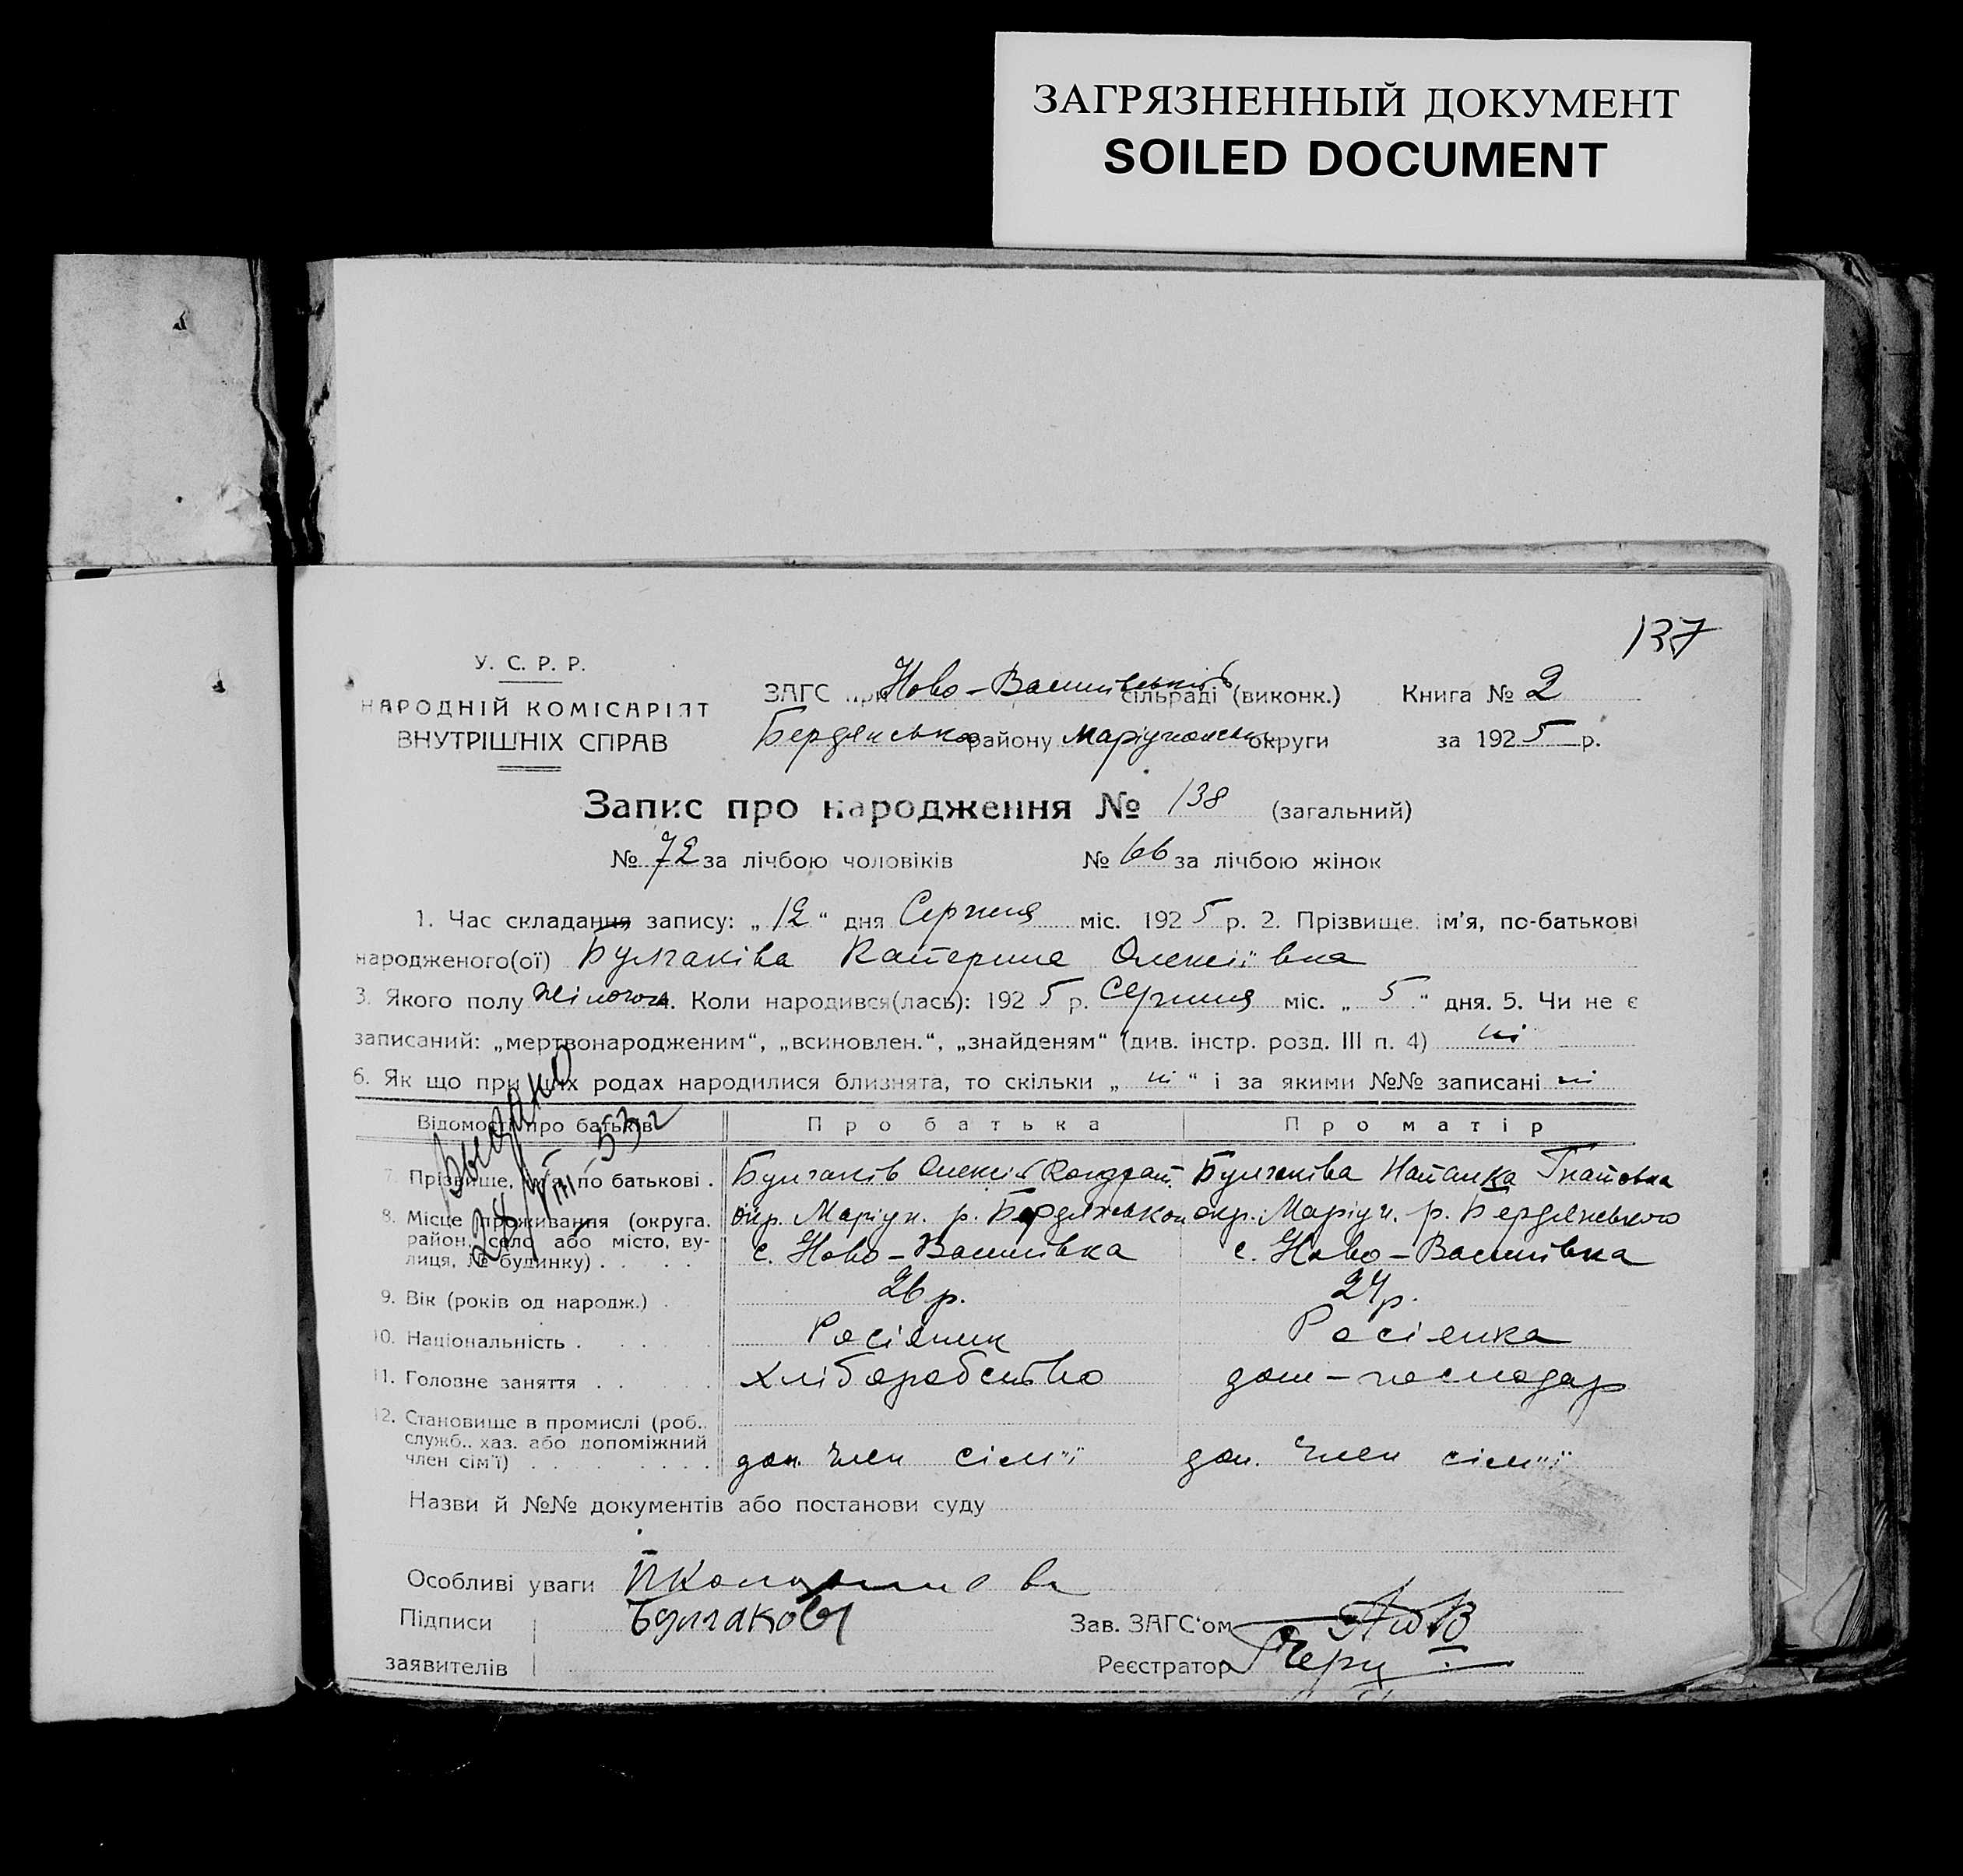 ЗАГРЯЗНЕННЫЙ ДОКУМЕНТ
SOILED DOCUMENT
137
У. С. Р. Р.
НАРОДНІЙ КОМІСАРІЯТ
ВНУТРІШНІХ СПРАВ
ЗАГС при Ново-Василівській сільраді (виконк.) Книга № 2
Бердянського району Маріупольськ округи за 1925 р.
Запис про народження № 138 (загальний)
№ 72 за лічбою чоловіків № 66 за лічбою жінок
1. Час складання запису: „12“ дня Серпня міс. 1925 р. 2. Прізвище, ім'я, по-батькові
народженого(ої) Булгаківа Катерина Олексіївна
3. Якого полу жіночого 4. Коли народився(лась): 1925 р. Серпня міс. „5“ дня. 5. Чи не є
записаний: „мертвонародженим“, „всиновлен.“, „знайденям“ (див. інстр. розд. III п. 4) ні
6. Як що при цих родах народилися близнята, то скільки „ні“ і за якими №№ записані ні
Відомості про батьків Про батька Про матір
Выдано
28/VIII 53 г
7. Прізвище, ім'я, по батькові . Булгаків Олексій Кондрат. Булгаківа Наталка Гнатовна
8. Місце проживання (округа, окр. Маріуп. р. Бердянського окр. Маріуп. р. Бердянського
район, село або місто, ву- с. Ново-Василівка с. Ново-Василівка
лиця, № будинку) . . . . .
9. Вік (років од народж.) . 26 р. 24 р.
10. Національність . . . . . Росіянин Росіянка
11. Головне заняття . . . . хліборобство дом-господар
12. Становище в промислі (роб.,
служб., хаз. або допоміжний
член сім'ї) . . . . . . . . доп. член сім"ї доп. член сім"ї
Назви й №№ документів або постанови суду
Особливі уваги
Підписи Булгаковы Зав. ЗАГС'ом
заявителів Реєстратор